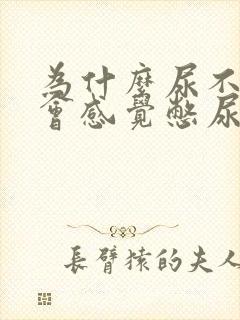 為什麼尿不
會感覺憋尿
長臂猿的夫人